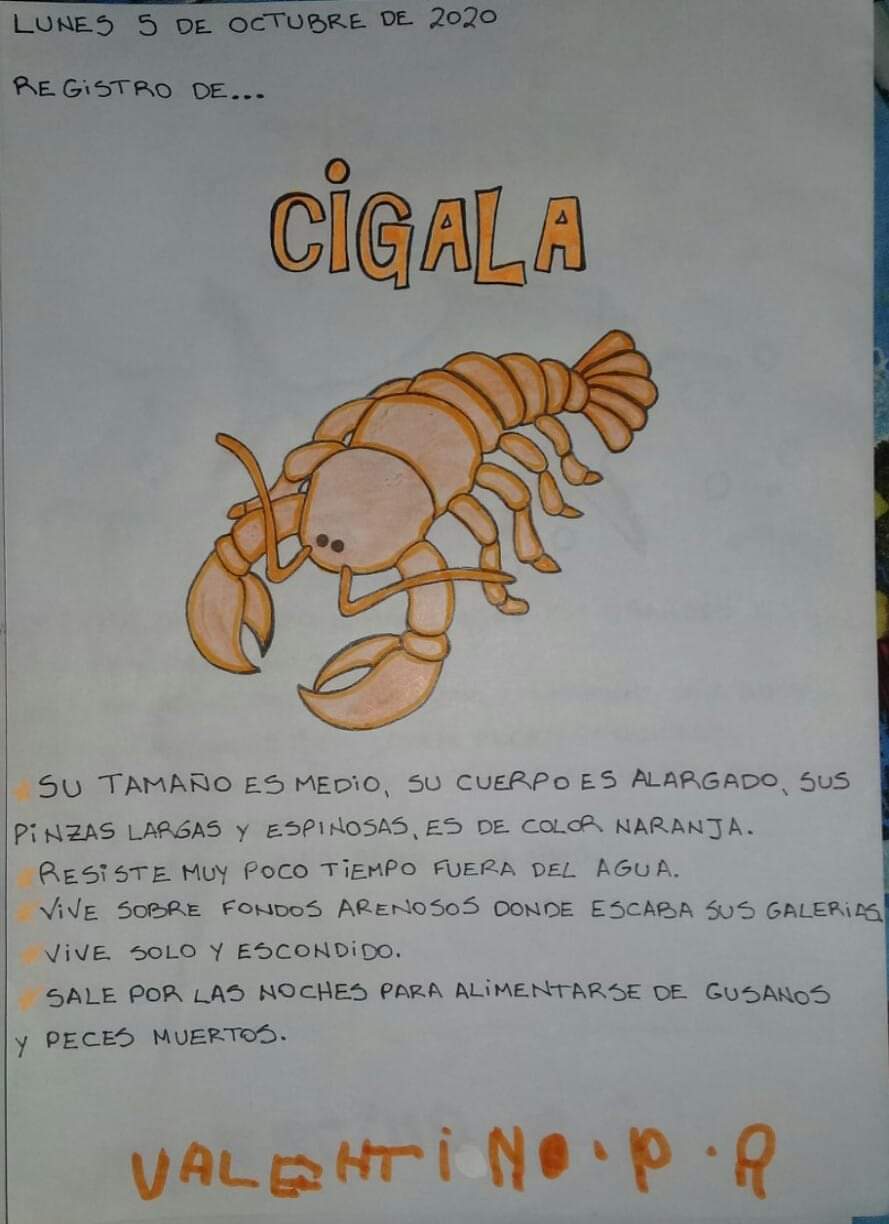 LUNES 5 DE OCTUBRE DE 2020
REGiSTRO DE...
CiGALA
SU TAMAÑO ES MEDiO, SU CUERPO ES ALARGADO, SUS
PiNZAS LARGAS Y ESPINOSAS, ES DE COLOR NARANJA.
RESiSTE MUY POCO TiEMPO FUERA DEL AGUA.
ViVE SOBRE FONDOS ARENOSOS DONDE ESCABA SUS GALERiAS.
ViVE SOLO Y ESCONDiDO.
SALE POR LAS NOCHES PARA ALiMENTARSE DE GUSANOS
Y PECES MUERTOS.
VALENTiNO.P.R